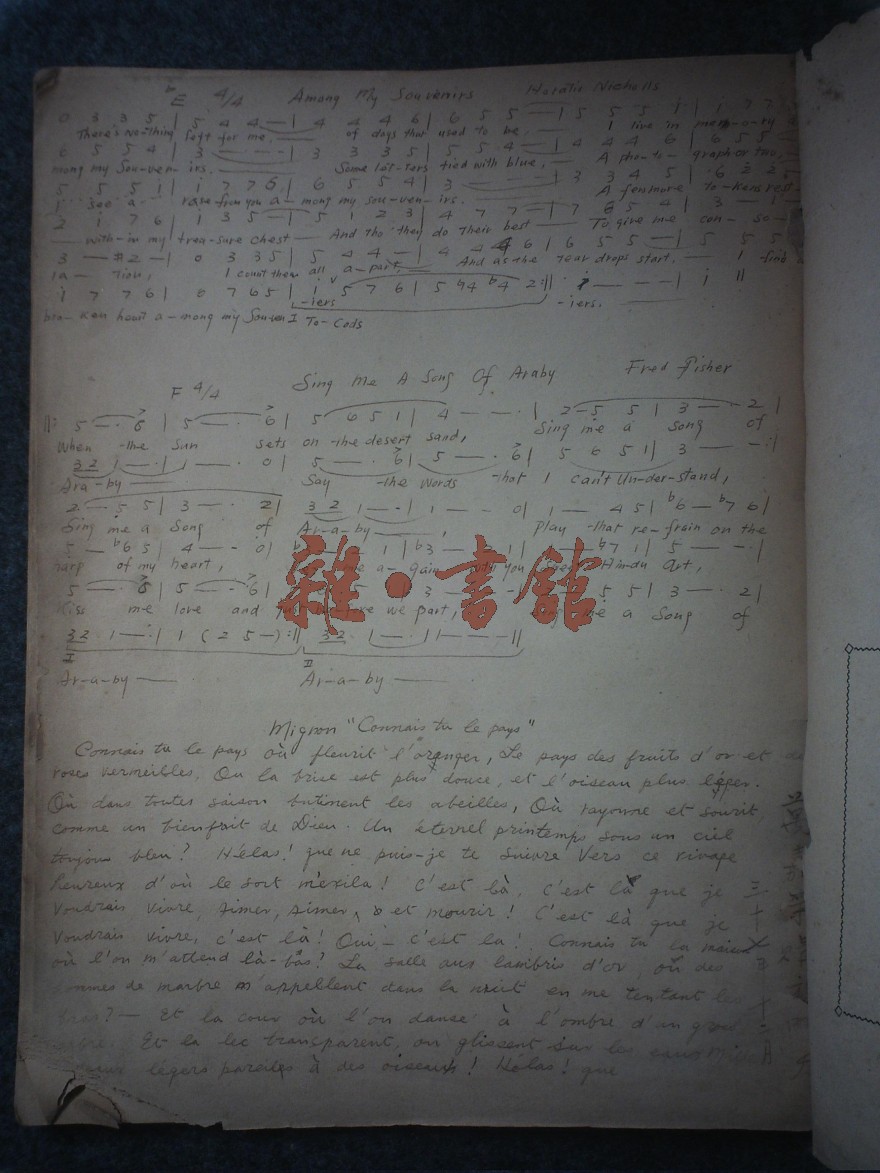 ♭E 4/4 Among My Souvenirs Horatio Nicholls
0 3 3 5 | 5 4 4 — | 4 4 4 6 | 6 5 5 — | 5 5 5 i | i 7 7
There's no-thing left for me, of days that used to be, I live in mem-o-ry
6 5 5 4 | 3 — | 3 3 3 5 | 5 5 4 — | 4 4 4 6 | 6 5 5
mong my Sou-ven-irs. Some let-ters tied with blue, A pho-to-graph or two,
5 5 5 i | i 7 7 6 | 6 5 5 4 | 3 — 3 3 4 5 | 6 2 2
I see a rose from you a-mong my sou-ven-irs. A few more to-kens rest
2 i 7 6 | i 3 5 — | 5 1 2 3 | 4 7 7 — | 7 6 5 4 | 3 — 1
with-in my trea-sure chest And tho they do their best To give me con-so-
3 — #2 — | 0 3 3 5 | 5 4 4 — | 4 4 4 6 | 6 5 5 — | 5 5 5
la-tion, I count them all a-part, And as the tear drops start, I find
i 7 7 6 | 0 7 6 5 | i 5 7 6 | 5 ♭4 ♭4 2 :|| i — — — | i ||
-iers -iers.
bro-ken heart a-mong my Souven I To-Cods
F 4/4 Sing Me A Song Of Araby Fred Fisher
||: 5 — · 6 | 5 — · 6 | 5 6 5 1 | 4 — — · | 2 — 5 5 | 3 — · 2 |
When the Sun sets on the desert sand, Sing me a Song of
3 2 1 — · | 1 — · 0 | 5 — · 6 | 5 — · 6 | 5 6 5 1 | 3 — — · |
Ara-by Say the Words that I can't Un-der-stand,
2 — 5 5 | 3 — · 2 | 3 2 1 — · | 1 — — 0 | 1 — 4 5 | ♭6 — ♭7 6 |
Sing me a Song of Ar-a-by, Play that re-frain on the
5 — ♭6 5 | 4 — · 0 | 1 | ♭3 — 1 | ♭7 1 | 5 — — · |
harp of my heart, me a-gain you Hindu Art,
5 — · 6 | 5 — · 6 | 5 3 5 5 | 3 — · 2 |
Kiss me love and we part, me a Song of
3 2 1 — · | 1 ( 2 5 — ) :|| 3 2 1 — · | 1 — — — ||
I II
Ar-a-by Ar-a-by
Mignon "Connais tu le pays"
Connais tu le pays où fleurit l'oranger, Le pays des fruits d'or et
roses vermeilles, Où la brise est plus douce, et l'oiseau plus léger.
Où dans toutes saison butinent les abeilles, Où rayonne et sourit
comme un bienfait de Dieu. Un éternel printemps sous un ciel
toujours bleu? Hélas! que ne puis-je te suivre Vers ce rivage
heureux d'où le sort m'exila! C'est là, c'est là que je
voudrais vivre, Aimer, aimer, et mourir! C'est là que je
Voudrais vivre, c'est là! Oui — c'est la! Connais tu la
où l'on m'attend là-bas? La salle aux lambris d'or, où des
hommes de marbre m'appellent dans la nuit en me tentant les
bras? — Et la cour où l'on danse à l'ombre d'un
Et la lac transparent, où glissent sur les eaux
légers pareils à des oiseaux! Hélas! que
雜·書館